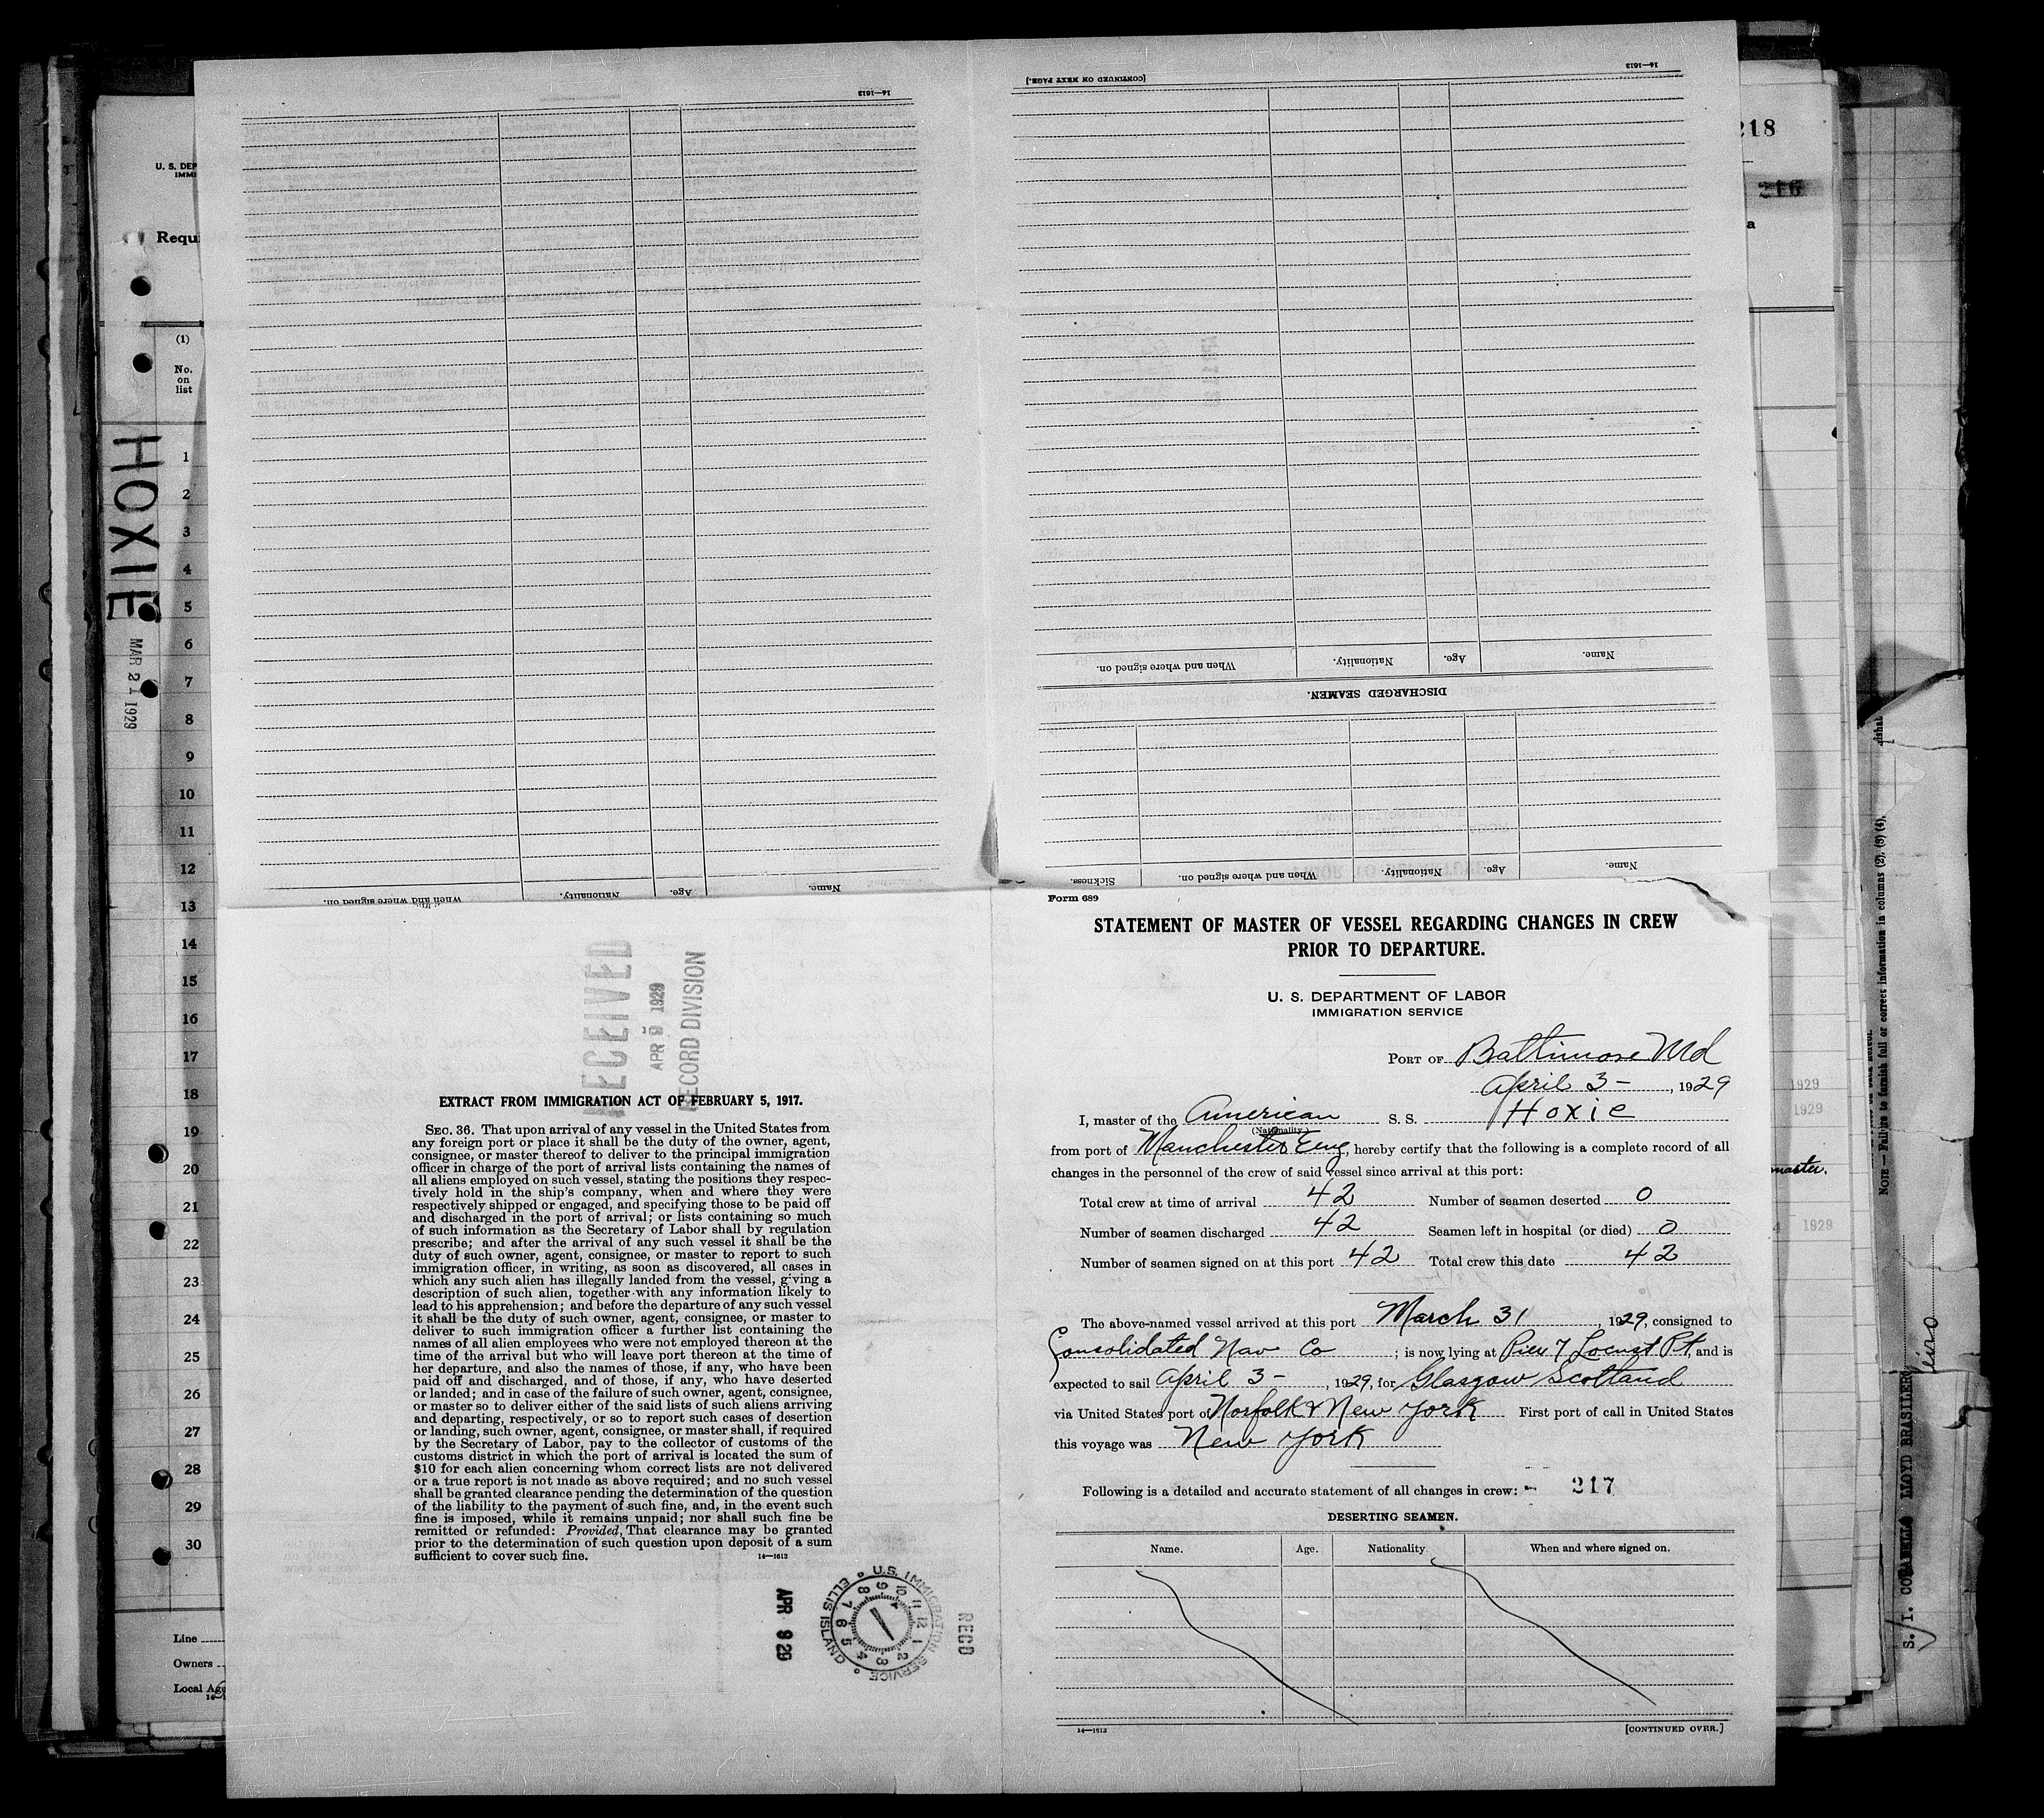 [CONTINUED ON NEXT PAGE.]
14—1613
14—1613
218
216
U. S. DEP
IMMI
Requi
a
(1)
No.
on
list
HOXIE
MAR 21 1929
1
2
3
4
5
6
7
8
9
10
11
12
13
14
15
16
17
18
19
20
21
22
23
24
25
26
27
28
29
30
Line
Owners
Local Age
When and where signed on. Nationality. Age. Name.
DISCHARGED SEAMEN.
Sickness. When and where signed on. Nationality. Age. Name.
When and where signed on. Nationality. Age. Name.
RECEIVED
APR 9 1929
RECORD DIVISION
EXTRACT FROM IMMIGRATION ACT OF FEBRUARY 5, 1917.
SEC. 36. That upon arrival of any vessel in the United States from
any foreign port or place it shall be the duty of the owner, agent,
consignee, or master thereof to deliver to the principal immigration
officer in charge of the port of arrival lists containing the names of
all aliens employed on such vessel, stating the positions they respec-
tively hold in the ship's company, when and where they were
respectively shipped or engaged, and specifying those to be paid off
and discharged in the port of arrival; or lists containing so much
of such information as the Secretary of Labor shall by regulation
prescribe; and after the arrival of any such vessel it shall be the
duty of such owner, agent, consignee, or master to report to such
immigration officer, in writing, as soon as discovered, all cases in
which any such alien has illegally landed from the vessel, giving a
description of such alien, together with any information likely to
lead to his apprehension; and before the departure of any such vessel
it shall be the duty of such owner, agent, consignee, or master to
deliver to such immigration officer a further list containing the
names of all alien employees who were not employed thereon at the
time of the arrival but who will leave port thereon at the time of
her departure, and also the names of those, if any, who have been
paid off and discharged, and of those, if any, who have deserted
or landed; and in case of the failure of such owner, agent, consignee,
or master so to deliver either of the said lists of such aliens arriving
and departing, respectively, or so to report such cases of desertion
or landing, such owner, agent, consignee, or master shall, if required
by the Secretary of Labor, pay to the collector of customs of the
customs district in which the port of arrival is located the sum of
$10 for each alien concerning whom correct lists are not delivered
or a true report is not made as above required; and no such vessel
shall be granted clearance pending the determination of the question
of the liability to the payment of such fine, and, in the event such
fine is imposed, while it remains unpaid; nor shall such fine be
remitted or refunded: Provided, That clearance may be granted
prior to the determination of such question upon deposit of a sum
sufficient to cover such fine.
14—1613
APR 9 29
U.S. IMMIGRATION SERVICE ELLIS ISLAND
12 1 2 3 4 5 6 7 8 9 10 11
RECD
Form 689
STATEMENT OF MASTER OF VESSEL REGARDING CHANGES IN CREW
PRIOR TO DEPARTURE.
U. S. DEPARTMENT OF LABOR
IMMIGRATION SERVICE
PORT OF Baltimore Md
April 3 - , 1929
I, master of the American S. S. Hoxie
(Nationality)
from port of Manchester Eng, hereby certify that the following is a complete record of all
changes in the personnel of the crew of said vessel since arrival at this port:
Total crew at time of arrival 42 Number of seamen deserted 0
Number of seamen discharged 42 Seamen left in hospital (or died) 0
Number of seamen signed on at this port 42 Total crew this date 42
The above-named vessel arrived at this port March 31, 1929, consigned to
Consolidated Nav Co; is now lying at Pier 7 Locust Pt, and is
expected to sail April 3 - , 1929, for Glasgow Scotland
via United States port of Norfolk & New York First port of call in United States
this voyage was New York
Following is a detailed and accurate statement of all changes in crew: 217
DESERTING SEAMEN.
Name. Age. Nationality When and where signed on.
14—1613
[CONTINUED OVER.]
1929
1929
master.
1929
NOTE — Failure to furnish full or correct information in columns (2), (3) (4),
LLOYD BRASILEIRO